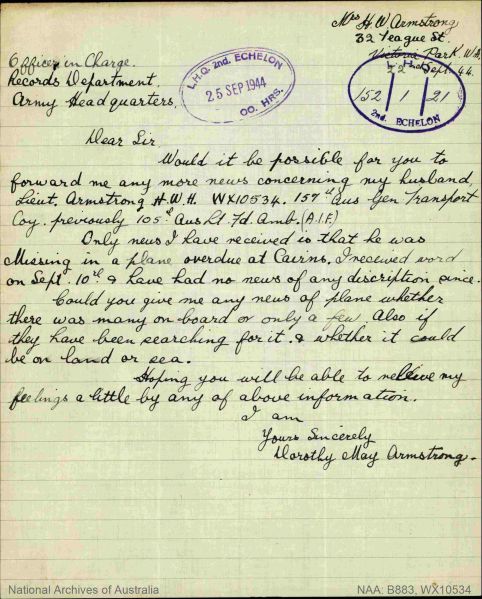 Mrs H. W. Armstrong
32 Teague St.
Victoria Park W.A.
22nd Sept. 44.
Officer in Charge.
Records Department.
Army Headquarters.
L.H.Q. 2nd. ECHELON
25 SEP 1944
00. HRS.
152 1 21
2nd. ECHELON
Dear Sir
Would it be possible for you to
forward me any more news concerning my husband,
Lieut. Armstrong H.W.H. WX10534. 157th Aus Gen Transport
Coy. previously 105th Aus Lt. Fd. Amb. (A.I.F.)
Only news I have received is that he was
Missing in a plane overdue at Cairns. I received word
on Sept. 10th & have had no news of any discription since.
Could you give me any news of plane whether
there was many on board or only a few. Also if
they have been searching for it. & whether it could
be on land or sea.
Hoping you will be able to relieve my
feelings a little by any of above information.
I am
Yours Sincerely
Dorothy May Armstrong.
National Archives of Australia
NAA: B883, WX10534